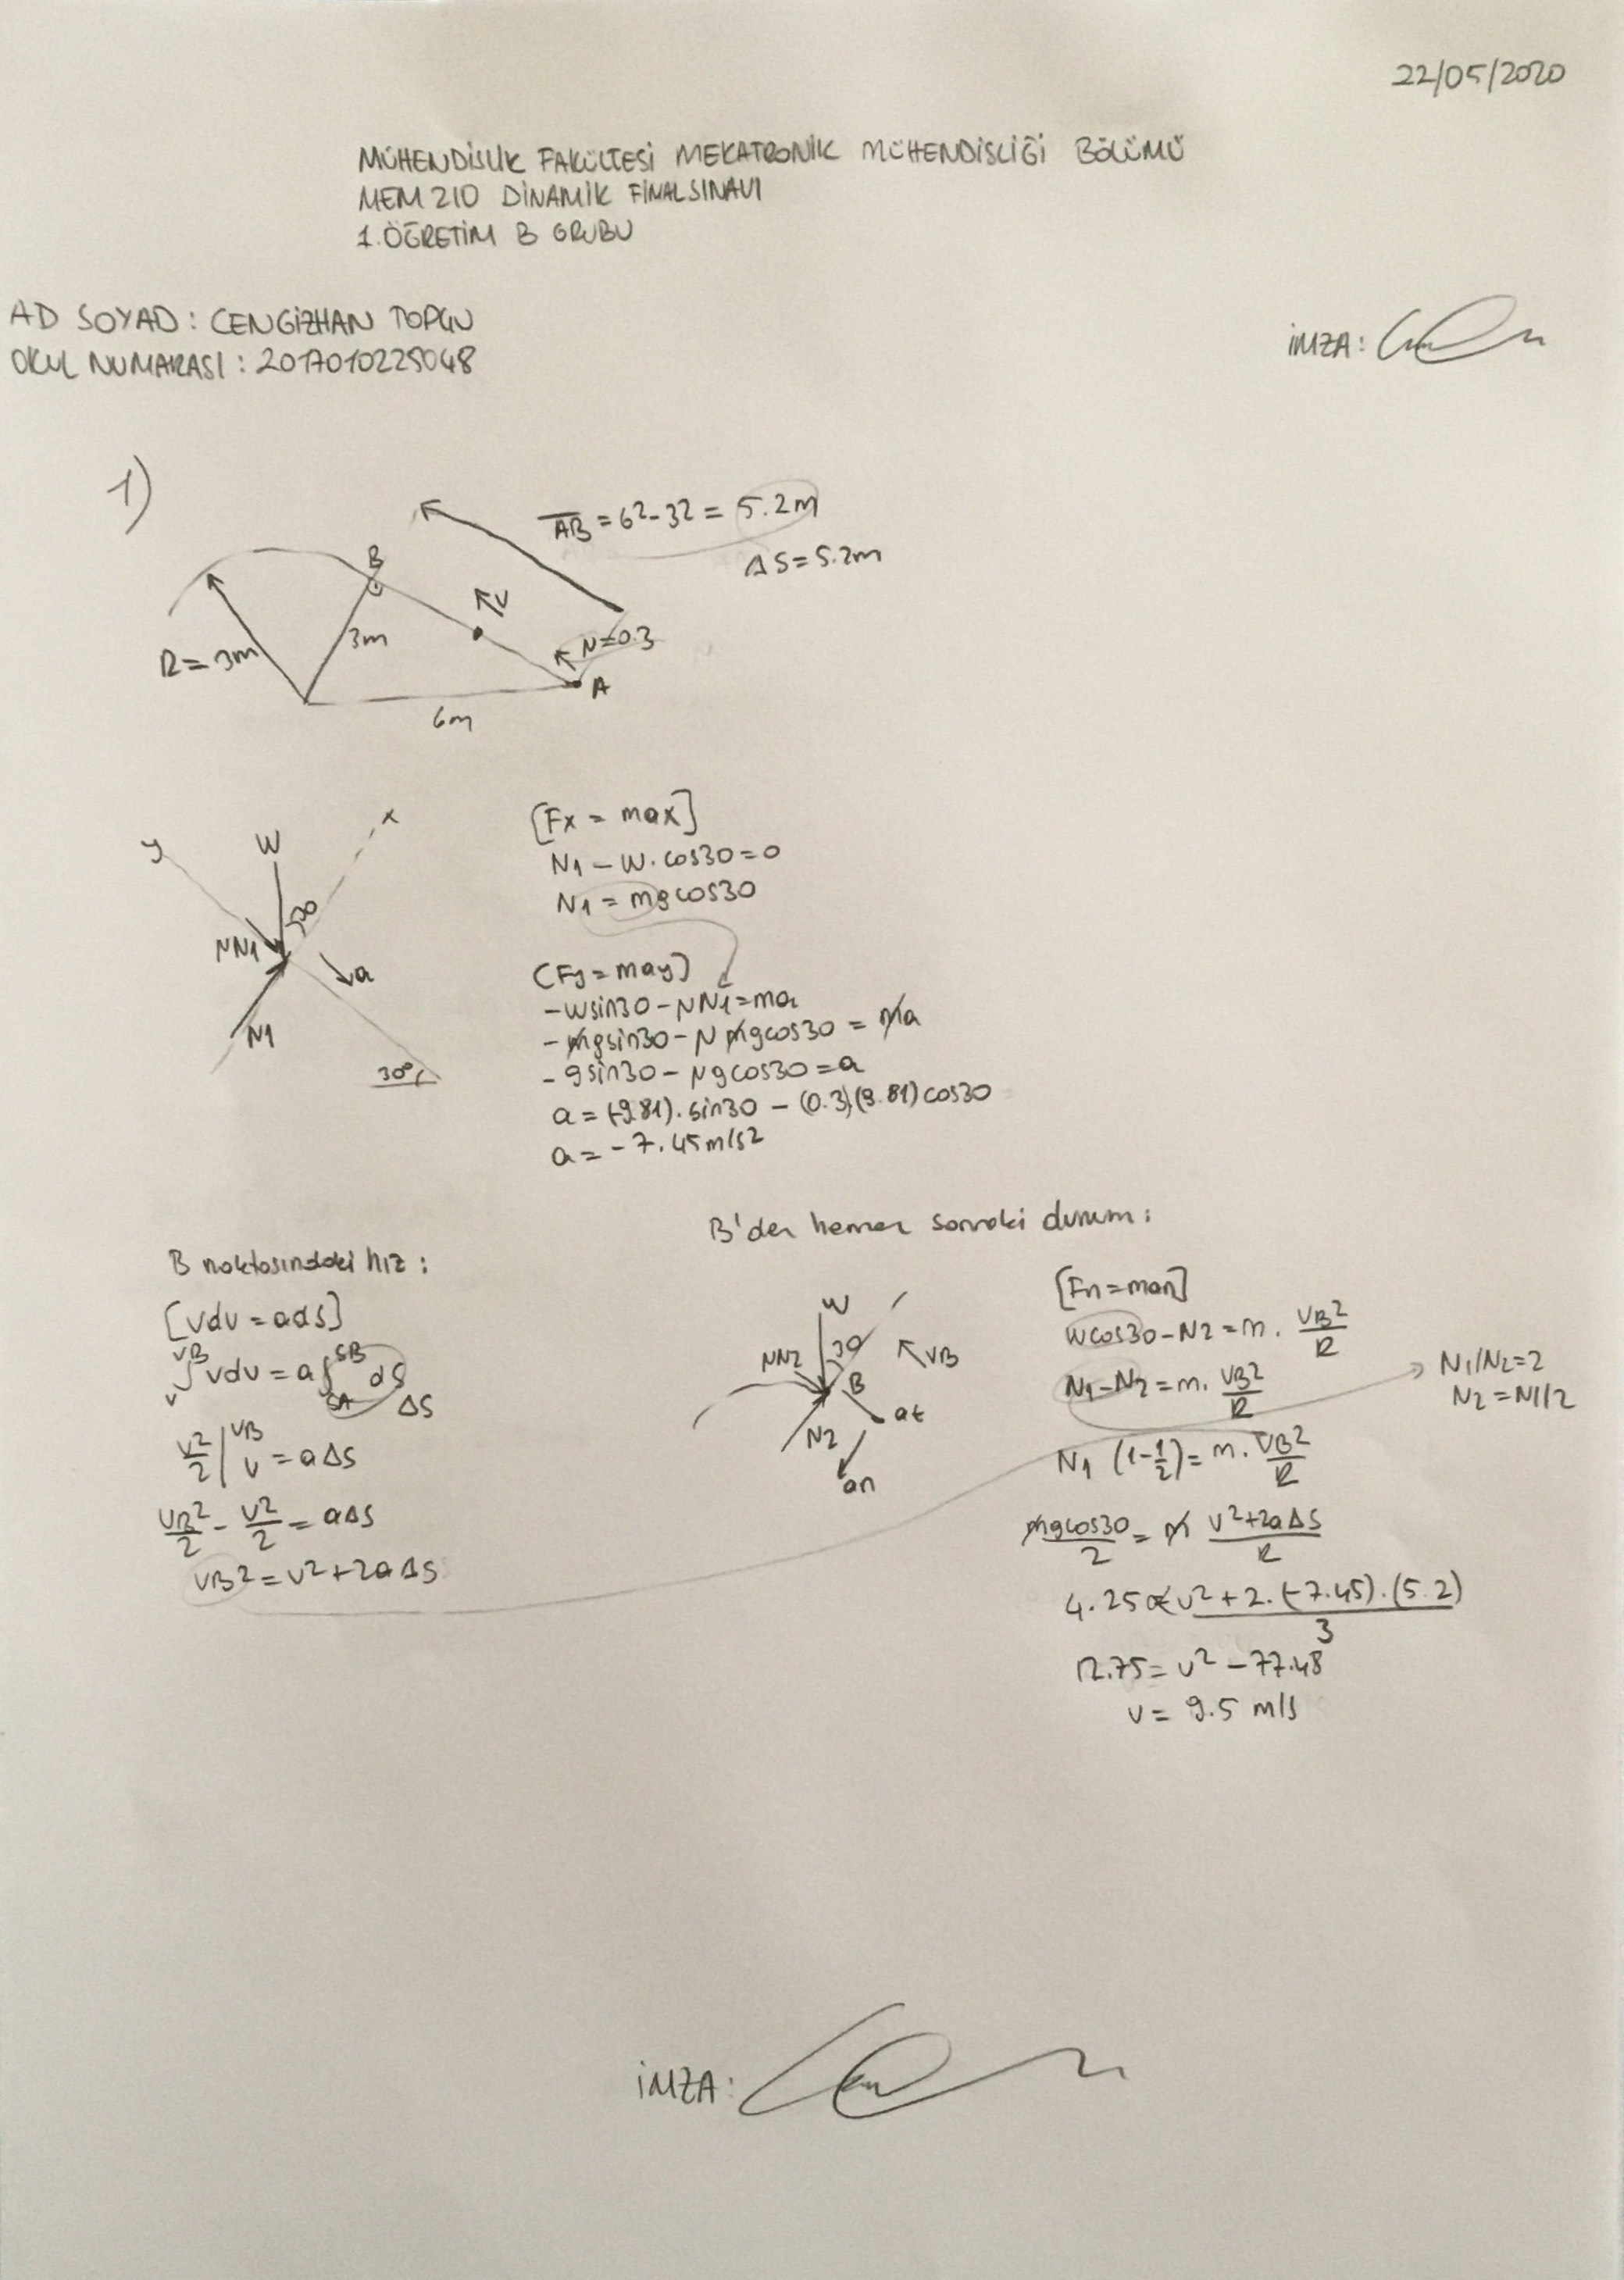 22/05/2020
MÜHENDİSLİK FAKÜLTESİ MEKATRONİK MÜHENDİSLİĞİ BÖLÜMÜ
MEM 210 DİNAMİK FİNAL SINAVI
1.ÖĞRETİM B GRUBU
AD SOYAD : CENGİZHAN TOPÇU
OKUL NUMARASI : 2017010225048
İMZA:
1)
AB = 6²-3² = 5.2m
ΔS=5.2m
B
V
3m
R=3m
N=0.3
A
6m
y
W
x
30
NN1
a
N1
30°
[Fx = max]
N1 - W.cos30=0
N1 = mgcos30
(Fy=may)
-wsin30-NN1=ma
-mgsin30-N mgcos30 = ma
-gsin30-Ngcos30=a
a=(-9.81).sin30 - (0.3)(9.81)cos30
a=-7.45m/s2
B noktasındaki hız :
[vdv = ads]
VB SB
∫vdv = a∫ds
V SA ΔS
v²/2 |VB V = aΔS
VB²/2 - V²/2 = aΔS
VB² = v²+2aΔS
B'den hemen sonraki durum :
W
30
NN2
VB
B
at
N2
an
[Fn=man]
wcos30-N2=m. VB²/R
N1-N2=m. VB²/R
N1/N2=2
N2=N1/2
N1 (1-1/2)=m. VB²/R
mgcos30/2 = m v²+2aΔS/R
4.25 = v²+2.(-7.45).(5.2)/3
12.75 = v² -77.48
v = 9.5 m/s
İMZA: